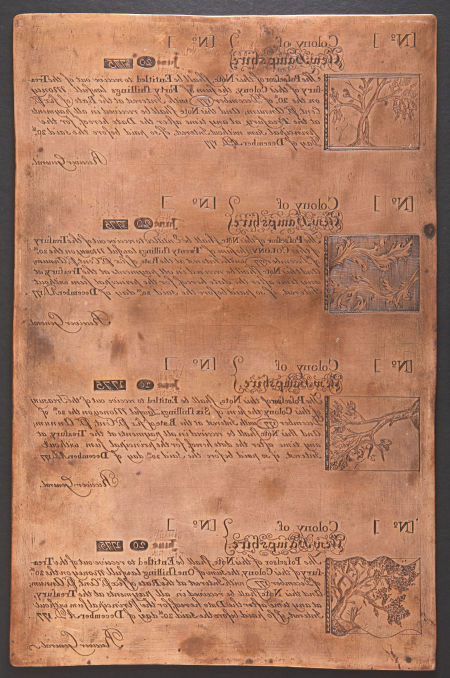 [No ] Colony of [No ]
New Hampshire. June 20 1775
The Possessor of this Note shall be Entitled to receive out of the Trea-
sury of this Colony the sum of Forty Shillings Lawful Money
on the 20th December 177 with Interest at the Rate of six Pr.
Cent Pr. Annum, and this Note shall be received in all payments
at the Treasury at any time after the Date hereof for the
principal sum without Interest, if so paid before the said 20th
Day of December. A.D. 177
Receiver General.
[No ] Colony of [No ]
New Hampshire. June 20 1775
The Possessor of this Note shall be Entitled to receive out of the Treasury
of this COLONY the sum of Twenty Shillings Lawful Money on the 20th
December 177 with Interest at the Rate of six Pr. Cent Pr.
and this Note shall be received in all payments at the Treasury at
any time after the date hereof for the principal sum without
Interest if so paid before the said 20th day of December. A.D. 177
Receiver General.
[No ] Colony of [No ]
New Hampshire. June 20 1775
The Possessor of this Note shall be Entitled to receive out of the Treasury
of this Colony the sum of Six Shillings Lawful Money on the 20th of
December 177 with Interest at the Rate of six Pr. Cent. Pr. Annum,
and this Note shall be received in all payments at the Treasury at
any time after the date hereof for the principal sum without
Interest, if so paid before the said 20th day of December, A.D. 177
Receiver General.
[No ] Colony of [No ]
New Hampshire. June 20 1775
The Possessor of this Note shall be Entitled to receive out of the Trea-
sury of this Colony the sum of One Shilling Lawful Money on the 20th
December 177 with Interest at the Rate of six Pr. Cent Pr. Annum,
and this Note shall be received in all payments at the Treasury
at any time after the Date hereof for the principal sum without
Interest, if so paid before the said 20th day of December A.D. 177
Receiver General.